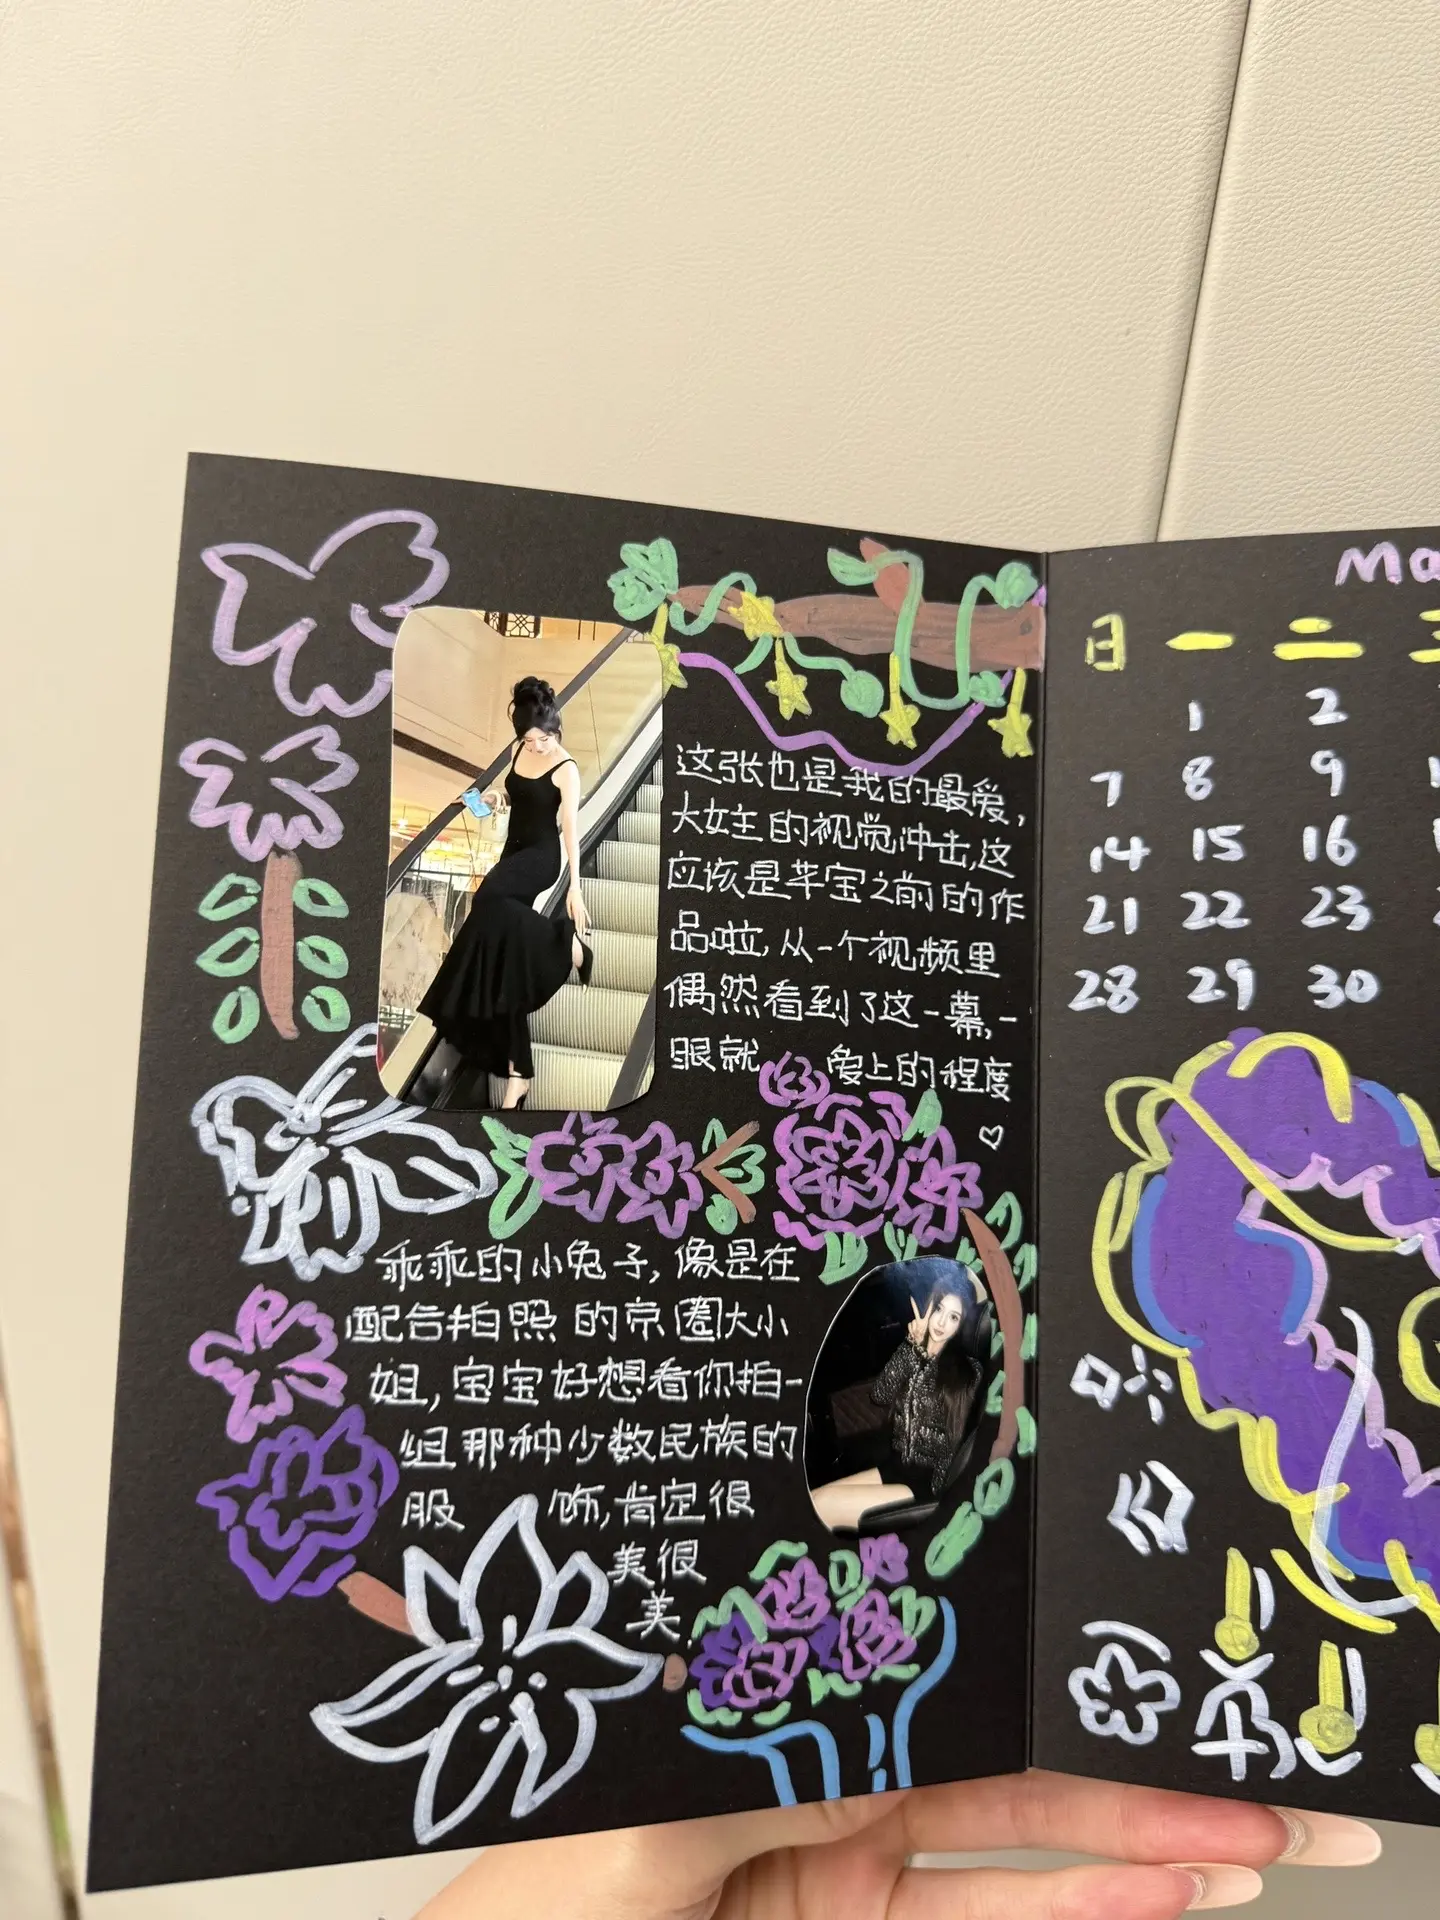 这张也是我的最爱，
大女主的视觉冲击，这
应该是芊宝之前的作
品啦，从一个视频里
偶然看到了这一幕，一
眼就 爱上的程度
♡
乖乖的小兔子，像是在
配合拍照的京圈大小
姐，宝宝好想看你拍一
组那种少数民族的
服 饰，肯定很
美很
美.
Ma
日 一 二 三
1 2
7 8 9
14 15 16
21 22 23
28 29 30